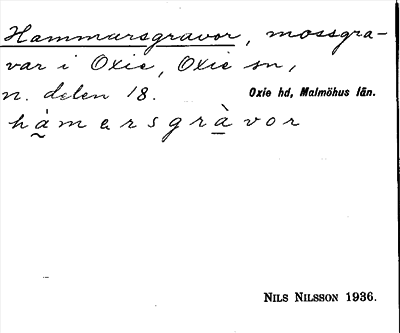 Hammarsgravor, mossgra-
var i Oxie, Oxie sn,
n. delen 18. Oxie hd, Malmöhus län.
hàmarsgràvor
NILS NILSSON 1936.